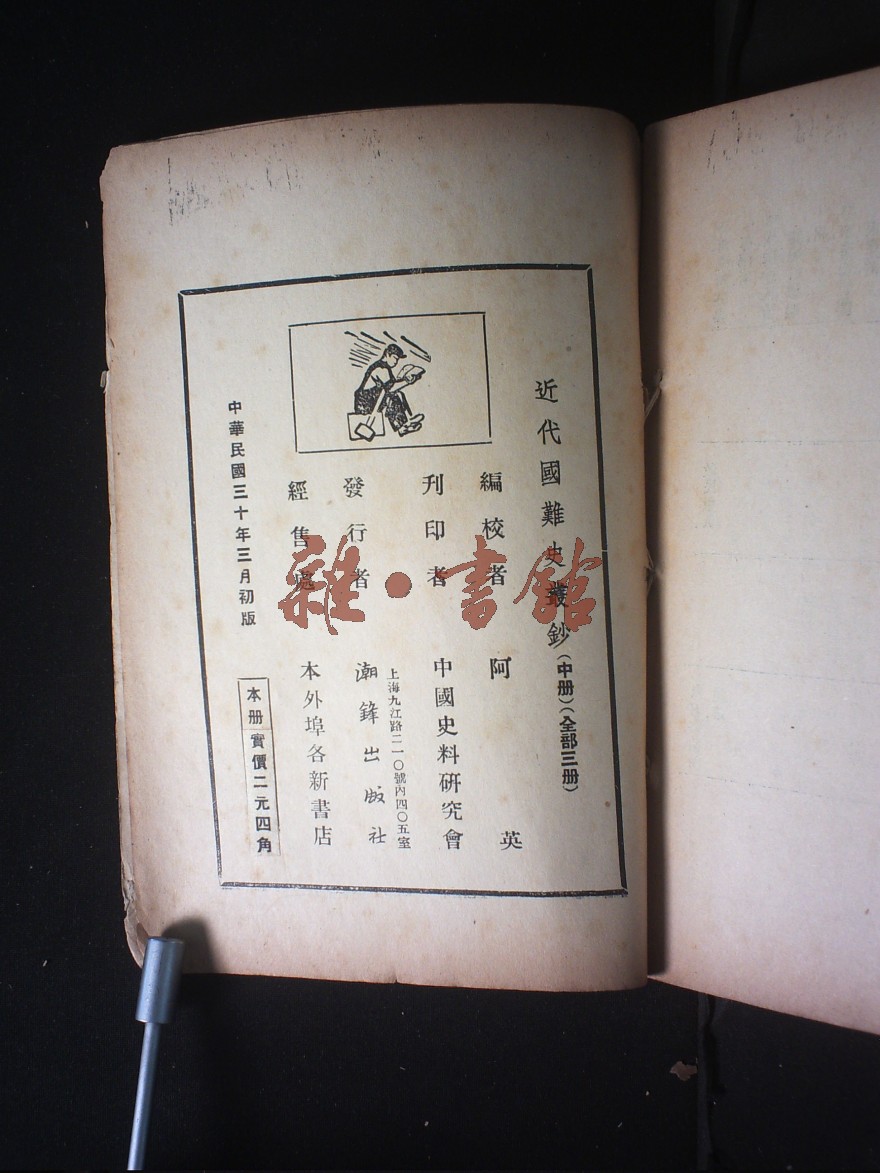 近代國難史叢鈔(中册)(全部三册)
編校者 阿英
刊印者 中國史料研究會
上海九江路二一〇號內四〇五室
發行者 潮鋒出版社
經售處 本外埠各新書店
中華民國三十年三月初版
本册實價二元四角
雜·書館